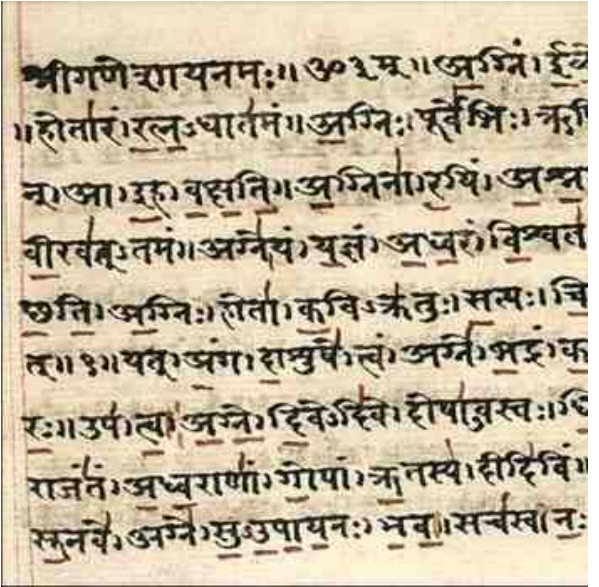 श्रीगणेशायनमः॥ॐ३म्॥अग्निं।ईळे
॥होतारं।रत्नऽधातमं॥अग्निः।पूर्वेभिः।ऋषि
न्।आ।इह।वक्षति॥अग्निना।रयिं।अश्न
वीरवत्ऽतमं॥अग्ने।यं।यज्ञं।अध्वरं।विश्वतः
छति।अग्निः।होता।कविऽक्रतुः।सत्यः।चि
त्॥१॥यत्।अंग।दाशुषे।त्वं।अग्ने।भद्रं।क
रः॥उप।त्वा।अग्ने।दिवेऽदिवे।दोषाऽवस्तः।धि
राजंतं।अध्वराणां।गोपां।ऋतस्य।दीदिविं॥
सूनवे।अग्ने।सुऽउपायनः।भव॥सचस्व।नः